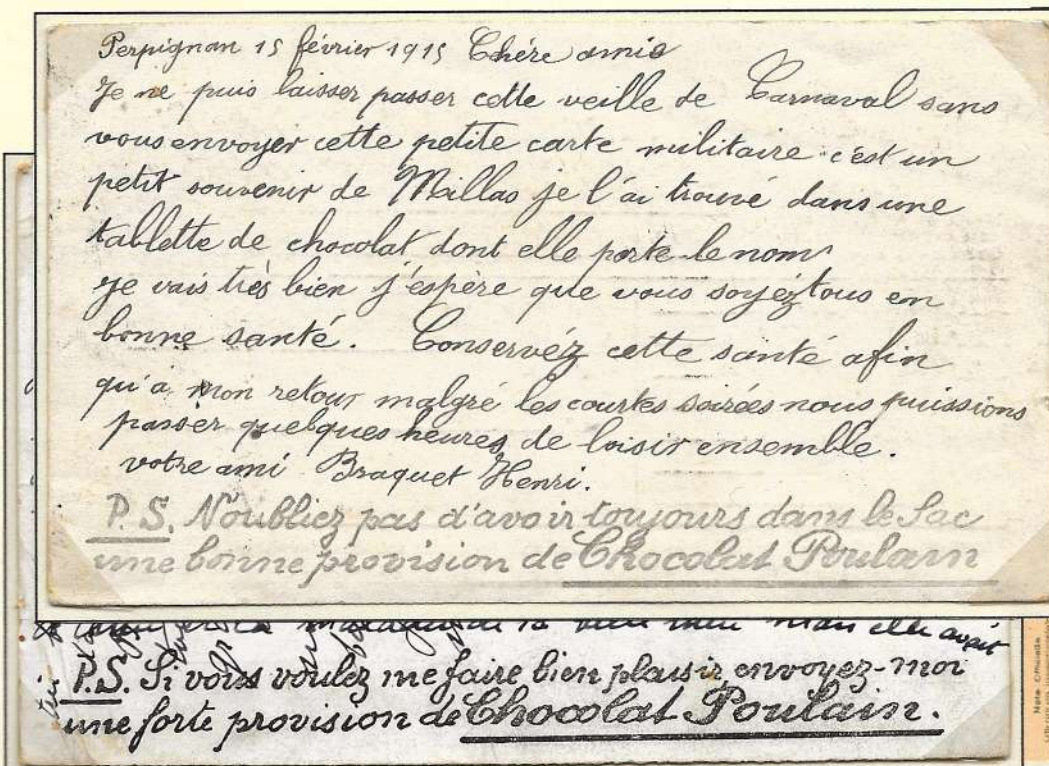 Perpignan 15 février 1915 Chére amie
Je ne puis laisser passer cette veille de Carnaval sans
vous envoyer cette petite carte militaire c'est un
petit souvenir de Millas je l'ai trouvé dans une
tablette de chocolat dont elle porte le nom
Je vais très bien j'éspère que vous soyéz tous en
bonne santé. Conservéz cette santé afin
qu'a mon retour malgré les courtes soirées nous puissions
passer quelques heures de loisir ensemble.
votre ami Braquet Henri.
P.S. N'oubliez pas d'avoir toujours dans le Sac
une bonne provision de Chocolat Poulain
mais elle avait
P.S. Si vous voulez me faire bien plaisir, envoyez-moi
une forte provision de Chocolat Poulain.